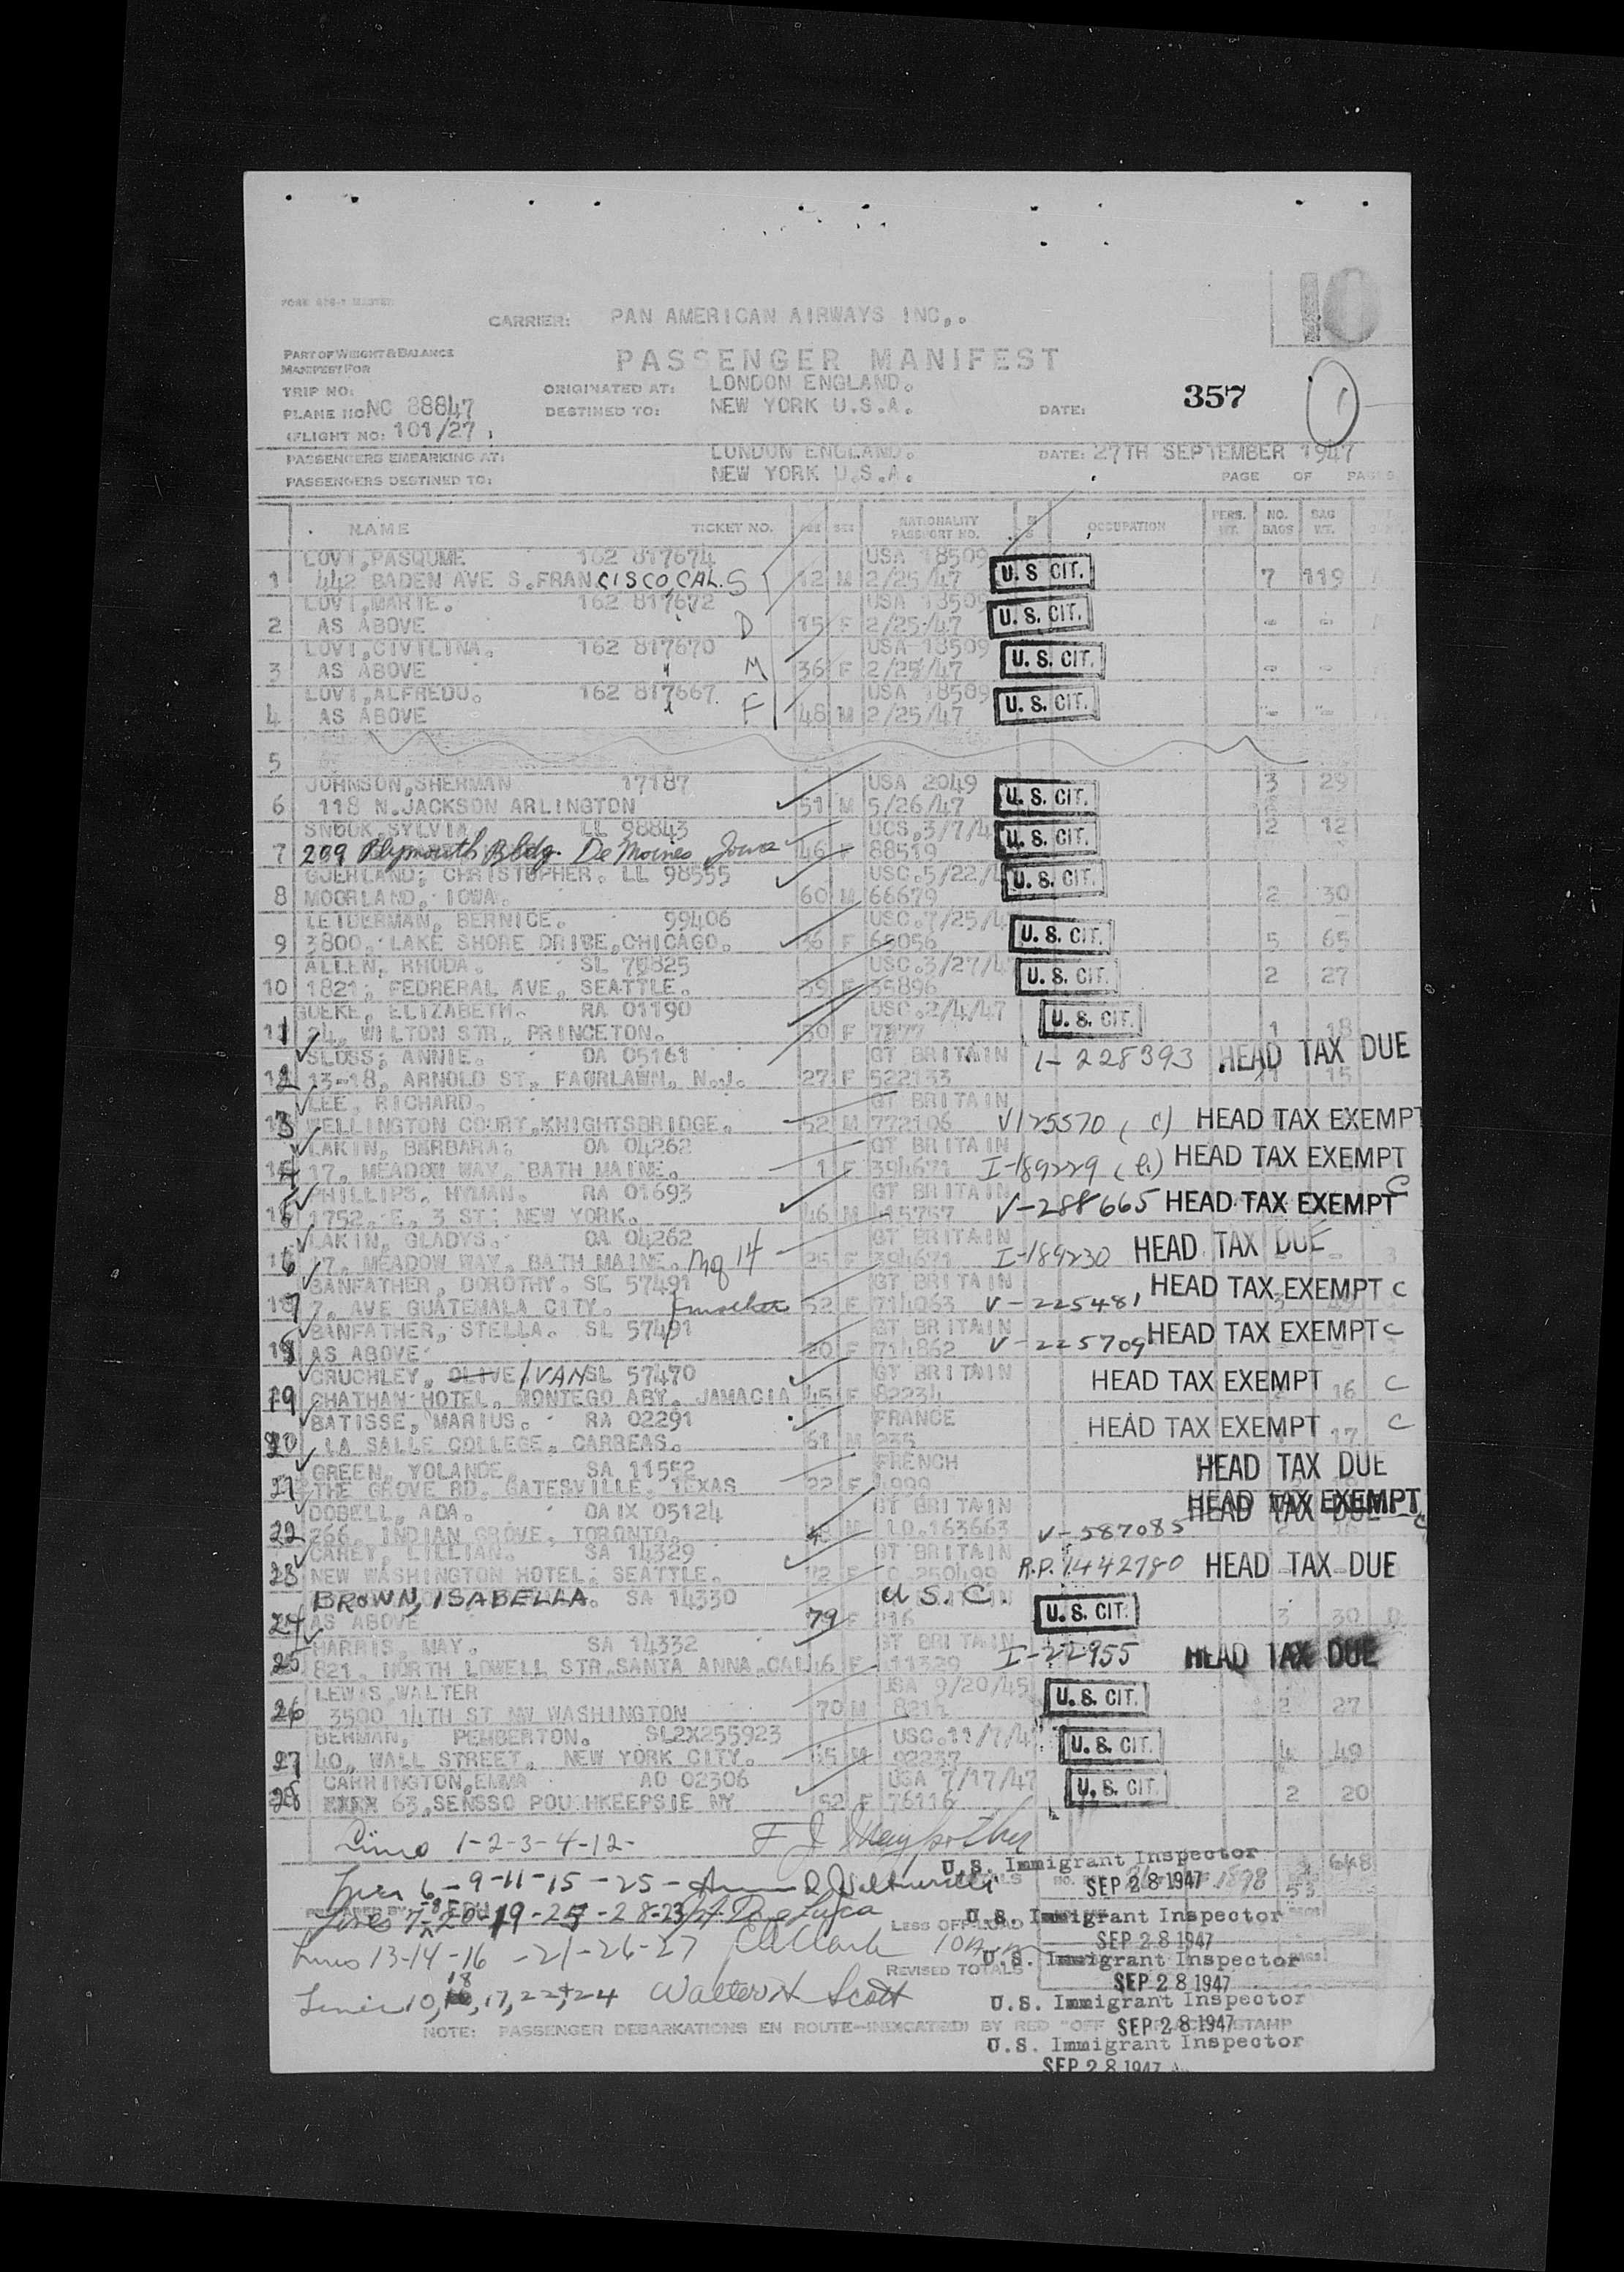 FORM 878-1 MASTER
10
CARRIER: PAN AMERICAN AIRWAYS INC,.
PART OF WEIGHT & BALANCE
MANIFEST FOR
PASSENGER MANIFEST
TRIP NO:
ORIGINATED AT: LONDON ENGLAND.
357
1
PLANE NO NC 88847
DESTINED TO: NEW YORK U.S.A.
DATE:
(FLIGHT NO: 101/27 )
PASSENGERS EMBARKING AT: LONDON ENGLAND.
DATE: 27TH SEPTEMBER 1947
PASSENGERS DESTINED TO: NEW YORK U.S.A.
PAGE OF PAGES
NAME TICKET NO. AGE SEX NATIONALITY PASSPORT NO. OCCUPATION PERS. WT. NO. BAGS BAG WT.
LOVI,PASQUME 162 817674 USA 18509
1 442 BADEN AVE S.FRANCISCO,CAL. S 12 M 2/25/47 U.S CIT. 7 119
LOVI,MARIE. 162 817672 USA 18509
2 AS ABOVE D 15 F 2/25/47 U.S. CIT. - -
LOVI,CIVILINA. 162 817670 USA 18509
3 AS ABOVE M 36 F 2/25/47 U.S. CIT. - -
LOVI,ALFREDO. 162 817667. USA 18509
4 AS ABOVE F 48 M 2/25/47 U.S. CIT. - -
5
JOHNSON,SHERMAN 17187 USA 2049 3 29
6 118 N.JACKSON ARLINGTON 51 M 5/26/47 U.S. CIT.
SNOOK,SYLVIA LL 98843 UCS.3/7/4 2 12
7 209 Plymouth Bldg. De Moines Iowa 46 F 88519 U.S. CIT.
GUERLAND; CHRISTOPHER. LL 98555 USC.5/22/4 U.S. CIT.
8 MOORLAND, IOWA. 60 M 66679 2 30
LEIDERMAN, BERNICE. 99406 USC.7/25/4
9 3800, LAKE SHORE DRIVE,CHICAGO. 36 F 65056 U.S. CIT. 5 65
ALLEN, RHODA. SL 70825 USC.3/27/4
10 1821; FEDRERAL AVE, SEATTLE. 39 F 55896 U.S. CIT. 2 27
GUEKE, ELIZABETH. RA 01190 USC.2/4/47
11 24, WILTON STR, PRINCETON. 30 F 7277 U.S. CIT. 1 18
SLOSS; ANNIE. OA 05161 GT BRITAIN I-228393 HEAD TAX DUE
12 13-18, ARNOLD ST, FAORLAWN, N.J. 27 F 522133 15
LEE, RICHARD. GT BRITAIN
13 WELLINGTON COURT,KNIGHTSBRIDGE. 52 M 772106 V125570 (C) HEAD TAX EXEMPT
LAKIN, BARBARA; OA 04262 GT BRITAIN
14 17, MEADOW WAY, BATH MAINE. 1 F 394671 I-189229 HEAD TAX EXEMPT
PHILLIPS, HYMAN. RA 01693 GT BRITAIN C
15 1752, E, 3 ST; NEW YORK. 46 M 415757 V-288665 HEAD TAX EXEMPT
LAKIN, GLADYS. OA 04262 GT BRITAIN
16 17, MEADOW WAY, BATH MAINE. 14 25 F 394671 I-189230 HEAD TAX DUE
BANFATHER, DOROTHY. SL 57491 GT BRITAIN
17 7, AVE GUATEMALA CITY. mother 52 F 714063 V-225481 HEAD TAX EXEMPT C
BANFATHER, STELLA. SL 57491 GT BRITAIN
18 AS ABOVE 20 F 714862 V-225709 HEAD TAX EXEMPT C
CRUCHLEY, OLIVE IVAN SL 57470 GT BRITAIN
19 CHATHAN HOTEL, MONTEGO ABY. JAMACIA 45 F 82234 HEAD TAX EXEMPT 16 C
BATISSE, MARIUS. RA 02291 FRANCE
20 LA SALLE COLLEGE, CARBEAS. 61 M 235 HEAD TAX EXEMPT 17 C
GREEN, YOLANDE. SA 11552 FRENCH
21 THE GROVE RD. GATESVILLE, TEXAS 22 F 4999 HEAD TAX DUE
DOBELL, ADA. OA IX 05124 GT BRITAIN HEAD TAX EXEMPT
22 266, INDIAN GROVE, TORONTO. M LO.163663 V-587085 C
CAREY, LILLIAN. SA 14329 GT BRITAIN
23 NEW WASHINGTON HOTEL; SEATTLE. F 250499 R.P. 1442780 HEAD TAX DUE
BROWN, ISABELLA. SA 14330 U.S.C.
24 AS ABOVE 79 F 216 U.S. CIT. 3 30
HARRIS, MAY. SA 14332 GT BRITAIN
25 821, NORTH LOWELL STR,SANTA ANNA,CAL 46 F 411329 I-22955 HEAD TAX DUE
LEWIS,WALTER USA 9/20/45
26 3500 14TH ST NW WASHINGTON 70 M 8213 U.S. CIT. 2 27
BERMAN, PEMBERTON. SL2X255923 USC.11/7/4
27 40, WALL STREET, NEW YORK CITY. M 92237 U.S. CIT. 4 49
CARRINGTON,EMMA AO 02306 USA 7/17/47
28 63,SENSSO POUGHKEEPSIE NY 52 F 76116 U.S. CIT. 2 20
Lines 1-2-3-4-12-
U.S. Immigrant Inspector
648
Lines 6-9-11-15-25-
SEP 28 1947
Lines 7-8-20-19-25-28-23
LESS OFF-LOAD
U.S. Immigrant Inspector
SEP 28 1947
Lines 13-14-16-21-26-27
REVISED TOTALS
U.S. Immigrant Inspector
SEP 28 1947
Lines 10, 18, 17, 22, + 24 Walter Scott
U.S. Immigrant Inspector
NOTE: PASSENGER DEBARKATIONS EN ROUTE-INDICATED BY RED "OFF STAMP
SEP 28 1947
U.S. Immigrant Inspector
SEP 28 1947